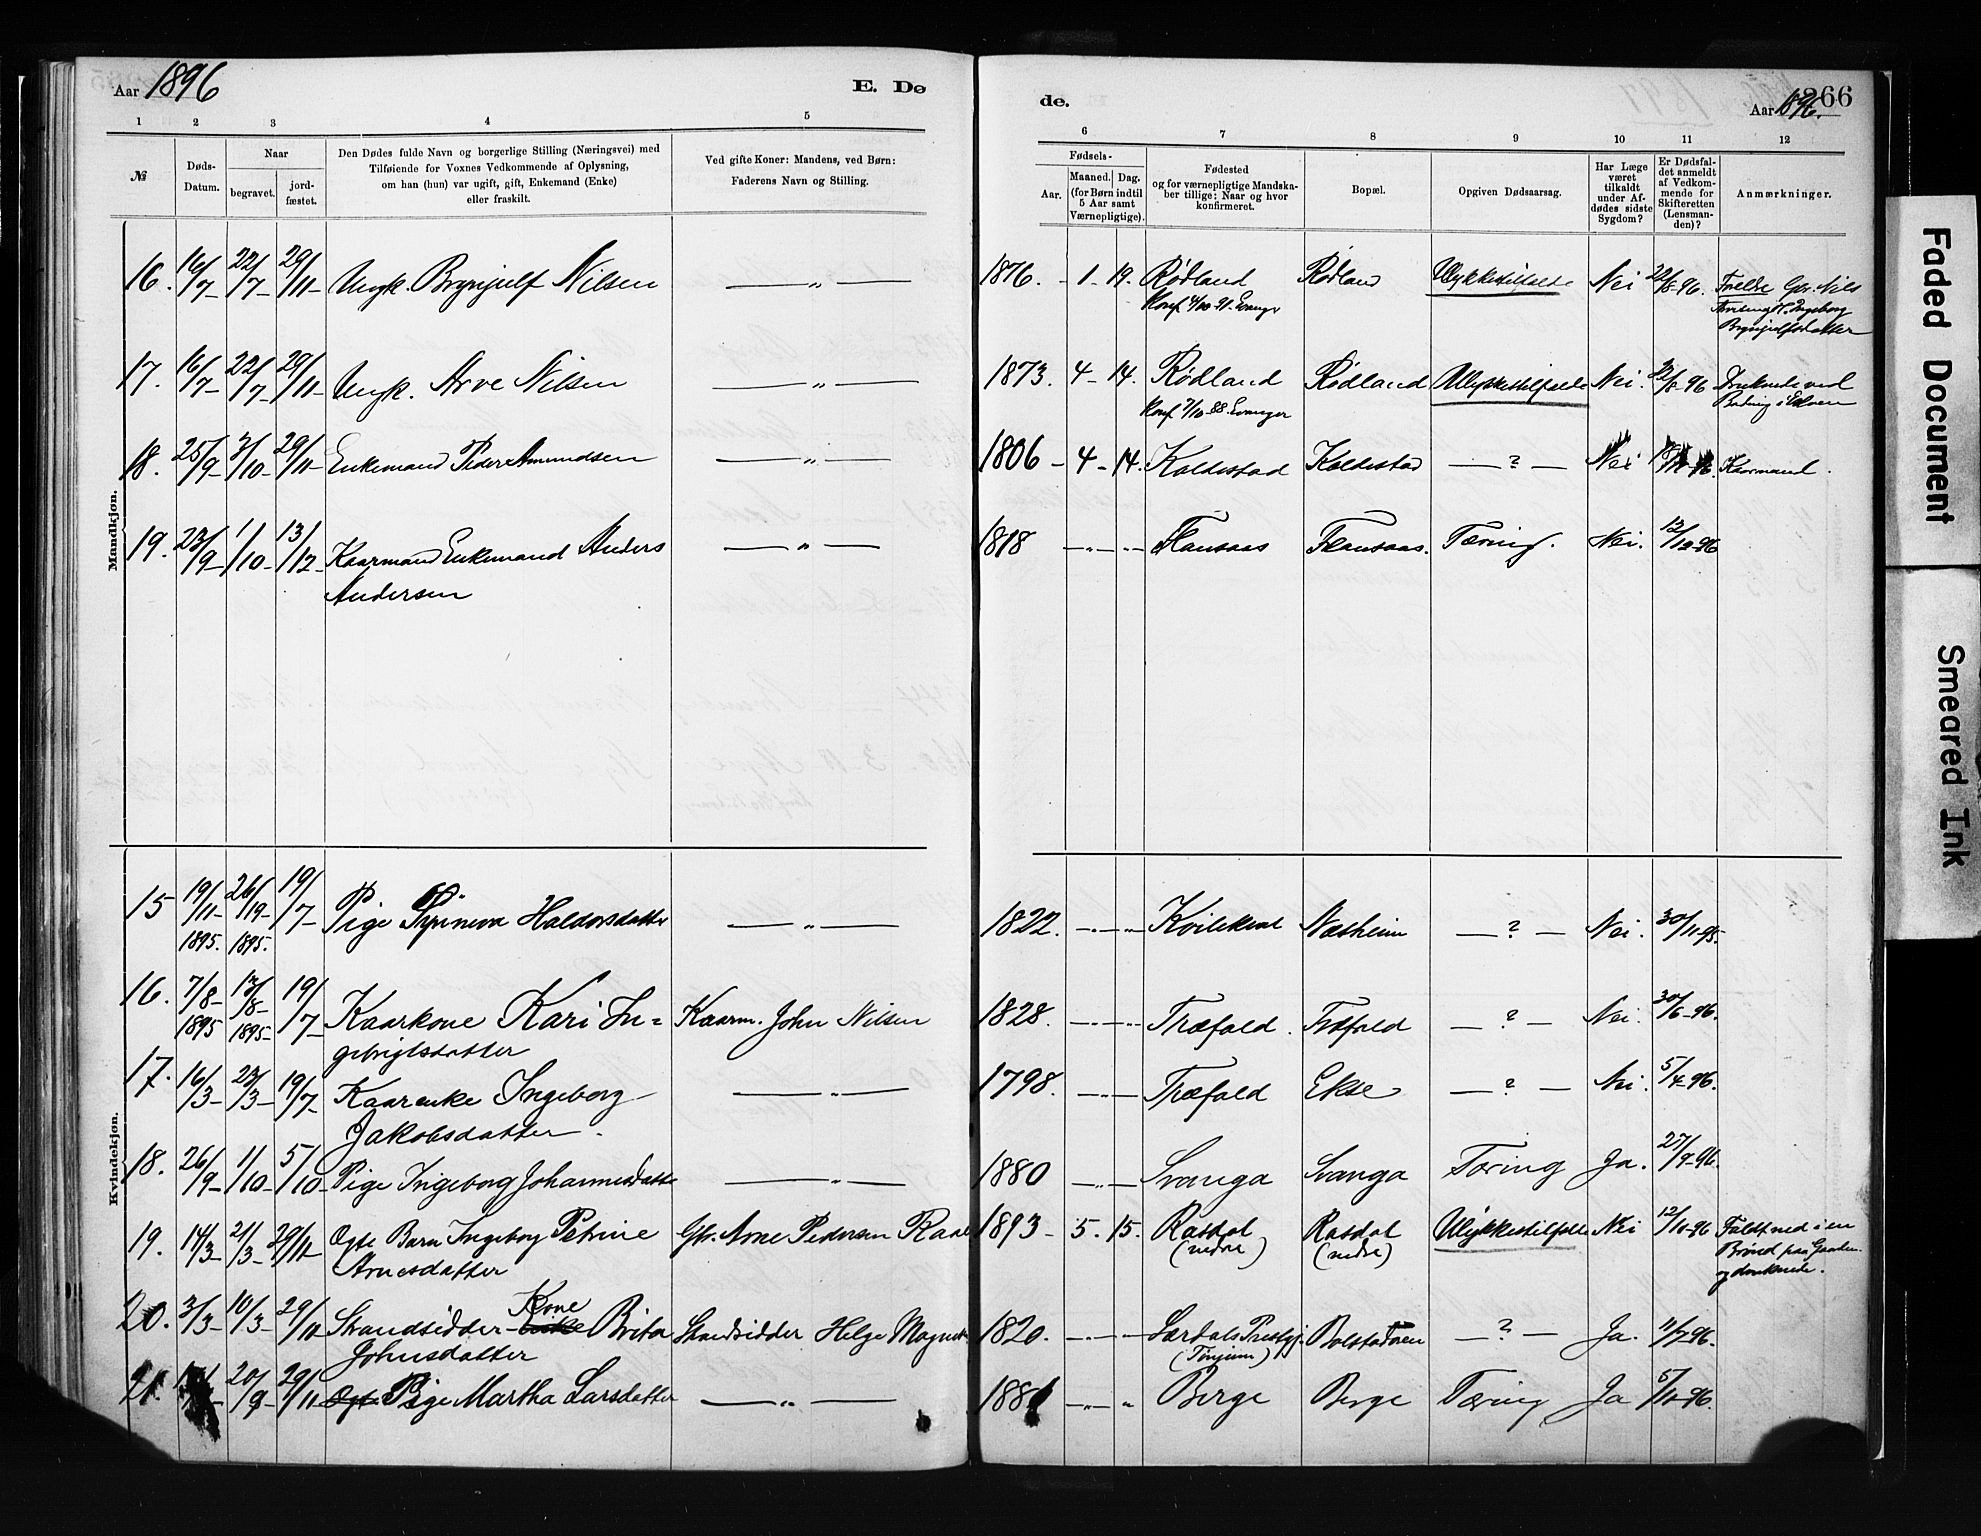 Aar 1896
E. Dø
de.
Aar 1896.
266
1 2 3 4 5
6 7 8 9 10 11 12
№
Døds-
Datum.
Naar
begravet.
jord-
fæstet.
Den Dødes fulde Navn og borgerlige Stilling (Næringsvei) med
Tilføiende for Voxnes Vedkommende af Oplysning,
om han (hun) var ugift, gift, Enkemand (Enke)
eller fraskilt.
Ved gifte Koner: Mandens, ved Børn:
Faderens Navn og Stilling.
Fødsels-
Aar.
Maaned. Dag.
(for Børn indtil
5 Aar samt
Værnepligtige).
Fødested
og for værnepligtige Mandska-
ber tillige: Naar og hvor
konfirmeret.
Bopæl.
Opgiven Dødsaarsag.
Har Læge
været
tilkaldt
under Af-
dødes sidste
Sygdom?
Er Dødsfal-
det anmeldt
af Vedkom-
mende for
Skifteretten
(Lensman-
den)?
Anmærkninger.
Mandkjøn.
16. 16/7- 22/7- 29/11- Ungk. Brynjulf Nilsen — " — 1876. - 1 - 19. Rødland Rødland Ulykkestilfælde Nei 22/8-96. Forældre Gbr. Nils
Konf. 4/10-91. Evanger
Brynjulfsdatter
17. 16/7- 22/7- 29/11- Ungk. Arve Nilsen — " — 1873. 4 - 14. Rødland Rødland Ulykkestilfælde Nei. 22/8-96 Druknede ved
Konf 7/10-88. Evanger Badning i Elven
18. 25/9- 3/10- 29/11- Enkemand Peder Amundsen — " — 1806 - 4 - 14. Koldestad Koldestad — ? — Nei Kaarmand.
19. 23/9- 1/10- 13/12- Kaarmand Enkemand Anders — " — 1818 — " — " — Flausaas Flausaas. Tæring. Nei. 12/12-96
Andersen
Kvindekjøn.
15 19/11- 26/11- 19/7- Pige Synneva Haldorsdatter — " — 1822. — " — " — Kvilekval Næsheim — ? — Nei. 30/11-95.
1895. 1895.
16. 7/8- 13/8- 19/7- Kaarkone Kari In= Kaarm. John Nilsen 1828. — " — " — Træfald. Træfald — ? — Nei. 30/6-96.
1895 1895-
gebrigtsdatter
17. 16/3- 23/3- 19/7- Kaarenke Ingeborg — " — 1798. — " — Træfald Ekse — ? — Nei. 5/4-96.
Jakobsdatter.
18. 26/9- 1/10- 5/10- Pige Ingeborg Johannesdatter — " — 1880 — " — Svanga Svanga Tæring Ja. 27/9-96.
19. 14/3- 21/3- 29/11- Ægte Barn Ingeborg Petrine Gbr. Arne Pedersen Rasd 1893 - 5. 15. Rasdal Rasdal Ulykkestilfælde Nei 12/10-96 Faldt ned i en
Arnesdatter (nedre) (nedre) Brønd paa Gaarden
og druknede.
20. 3/3- 10/3- 29/11 Strandsidder Kone Brita Strandsidder Helge Magnus 1820. — " — " — Lærdals Præstegj. Bolstadøren — ? — Ja. 11/7-96.
Johnsdatter (Tønjum)
21. 20/9- 29/11- Pige Martha Larsdatter — " — 188 — " — " Berge Berge Tæring Ja 5/10-96.
Faded Document
Smeared Ink